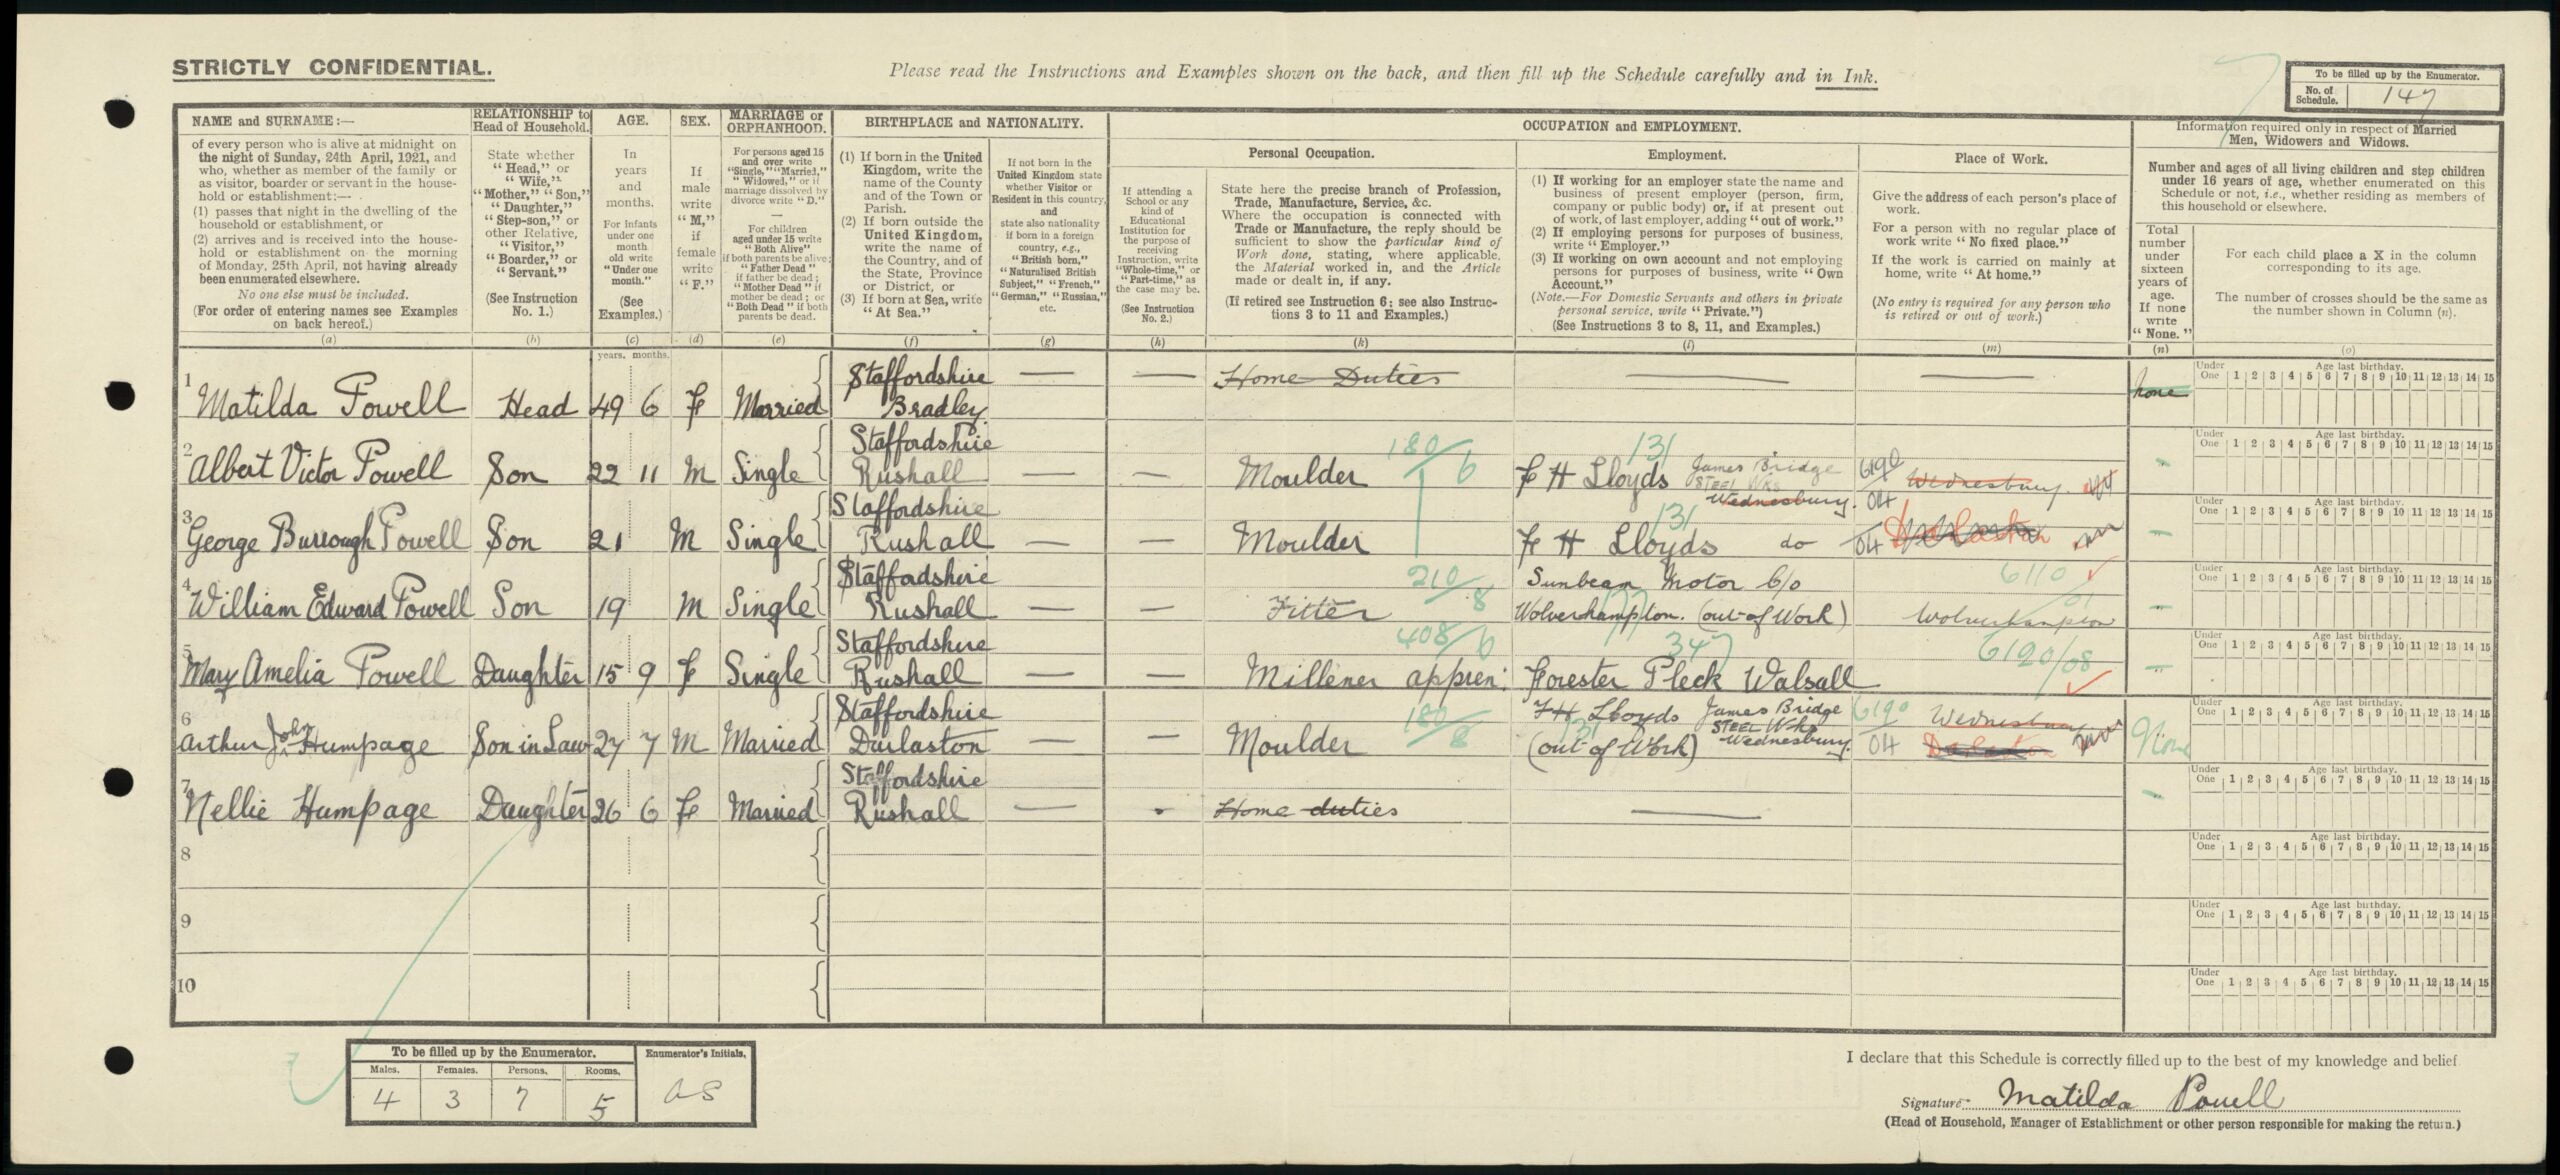 STRICTLY CONFIDENTIAL.
Please read the Instructions and Examples shown on the back, and then fill up the Schedule carefully and in Ink.
To be filled up by the Enumerator.
No. of Schedule. 147
NAME and SURNAME:—
of every person who is alive at midnight on
the night of Sunday, 24th April, 1921, and
who, whether as member of the family or
as visitor, boarder or servant in the house-
hold or establishment:—
(1) passes that night in the dwelling of the
household or establishment, or
(2) arrives and is received into the house-
hold or establishment on the morning
of Monday, 25th April, not having already
been enumerated elsewhere.
No one else must be included.
(For order of entering names see Examples
on back hereof.)
(a)
RELATIONSHIP to
Head of Household.
State whether
"Head," or
"Wife,"
"Mother," "Son,"
"Daughter,"
"Step-son," or
other Relative,
"Visitor,"
"Boarder," or
"Servant."
(See Instruction
No. 1.)
(b)
AGE.
In
years
and
months.
For infants
under one
month
old write
"Under one
month."
(See
Examples.)
(c)
SEX.
If
male
write
"M,"
if
female
write
"F."
(d)
MARRIAGE or
ORPHANHOOD.
For persons aged 15
and over write
"Single," "Married,"
"Widowed," or if
marriage dissolved by
divorce write "D."
—
For children
aged under 15 write
"Both Alive"
if both parents be alive;
"Father Dead"
if father be dead;
"Mother Dead" if
mother be dead; or
"Both Dead" if both
parents be dead.
(e)
BIRTHPLACE and NATIONALITY.
(1) If born in the United
Kingdom, write the
name of the County
and of the Town or
Parish.
(2) If born outside the
United Kingdom,
write the name of
the Country, and of
the State, Province
or District, or
(3) If born at Sea, write
"At Sea."
(f)
If not born in the
United Kingdom state
whether Visitor or
Resident in this country,
and
state also nationality
if born in a foreign
country, e.g.,
"British born,"
"Naturalised British
Subject," "French,"
"German," "Russian,"
etc.
(g)
OCCUPATION and EMPLOYMENT.
If attending a
School or any
kind of
Educational
Institution for
the purpose of
receiving
Instruction, write
"Whole-time," or
"Part-time," as
the case may be.
(See Instruction
No. 2.)
(h)
Personal Occupation.
State here the precise branch of Profession,
Trade, Manufacture, Service, &c.
Where the occupation is connected with
Trade or Manufacture, the reply should be
sufficient to show the particular kind of
Work done, stating, where applicable,
the Material worked in, and the Article
made or dealt in, if any.
(If retired see Instruction 6; see also Instruc-
tions 3 to 11 and Examples.)
(k)
Employment.
(1) If working for an employer state the name and
business of present employer (person, firm,
company or public body) or, if at present out
of work, of last employer, adding "out of work."
(2) If employing persons for purposes of business,
write "Employer."
(3) If working on own account and not employing
persons for purposes of business, write "Own
Account."
(Note.—For Domestic Servants and others in private
personal service, write "Private.")
(See Instructions 3 to 8, 11, and Examples.)
(l)
Place of Work.
Give the address of each person's place of
work.
For a person with no regular place of
work write "No fixed place."
If the work is carried on mainly at
home, write "At home."
(No entry is required for any person who
is retired or out of work.)
(m)
Information required only in respect of Married
Men, Widowers and Widows.
Number and ages of all living children and step children
under 16 years of age, whether enumerated on this
Schedule or not, i.e., whether residing as members of
this household or elsewhere.
Total
number
under
sixteen
years of
age.
If none
write
"None."
(n)
For each child place a X in the column
corresponding to its age.
The number of crosses should be the same as
the number shown in Column (n).
(o)
years. months.
1 Matilda Powell Head 49 6 F Married Staffordshire Bradley — — Home Duties — — None
2 Albert Victor Powell Son 22 11 M Single Staffordshire Rushall — — Moulder 180/6 F H Lloyds 131 James Bridge STEEL WKS Wednesbury. 6190/04 Wednesbury
3 George Burrough Powell Son 21 M Single Staffordshire Rushall — — Moulder F H Lloyds 131 do 04
4 William Edward Powell Son 19 M Single Staffordshire Rushall — — Fitter 210/8 Sunbeam Motor Co Wolverhampton. (out of Work) 6110/01 Wolverhampton
5 Mary Amelia Powell Daughter 15 9 F Single Staffordshire Rushall — — Millener appren: 408/6 Forester Pleck Walsall 347 6120/08
6 Arthur John Humpage Son in Law 27 7 M Married Staffordshire Darlaston — — Moulder 180/8 F H Lloyds James Bridge STEEL Wks Wednesbury. (out of Work) 131 6190/04 Wednesbury None
7 Nellie Humpage Daughter 26 6 F Married Staffordshire Rushall — Home duties —
8
9
10
Under One Age last birthday. 1 2 3 4 5 6 7 8 9 10 11 12 13 14 15
Under One Age last birthday. 1 2 3 4 5 6 7 8 9 10 11 12 13 14 15
Under One Age last birthday. 1 2 3 4 5 6 7 8 9 10 11 12 13 14 15
Under One Age last birthday. 1 2 3 4 5 6 7 8 9 10 11 12 13 14 15
Under One Age last birthday. 1 2 3 4 5 6 7 8 9 10 11 12 13 14 15
Under One Age last birthday. 1 2 3 4 5 6 7 8 9 10 11 12 13 14 15
Under One Age last birthday. 1 2 3 4 5 6 7 8 9 10 11 12 13 14 15
Under One Age last birthday. 1 2 3 4 5 6 7 8 9 10 11 12 13 14 15
Under One Age last birthday. 1 2 3 4 5 6 7 8 9 10 11 12 13 14 15
Under One Age last birthday. 1 2 3 4 5 6 7 8 9 10 11 12 13 14 15
To be filled up by the Enumerator.
Males. Females. Persons. Rooms.
4 3 7 5
Enumerator's Initials.
AS
I declare that this Schedule is correctly filled up to the best of my knowledge and belief
Signature Matilda Powell
(Head of Household, Manager of Establishment or other person responsible for making the return.)